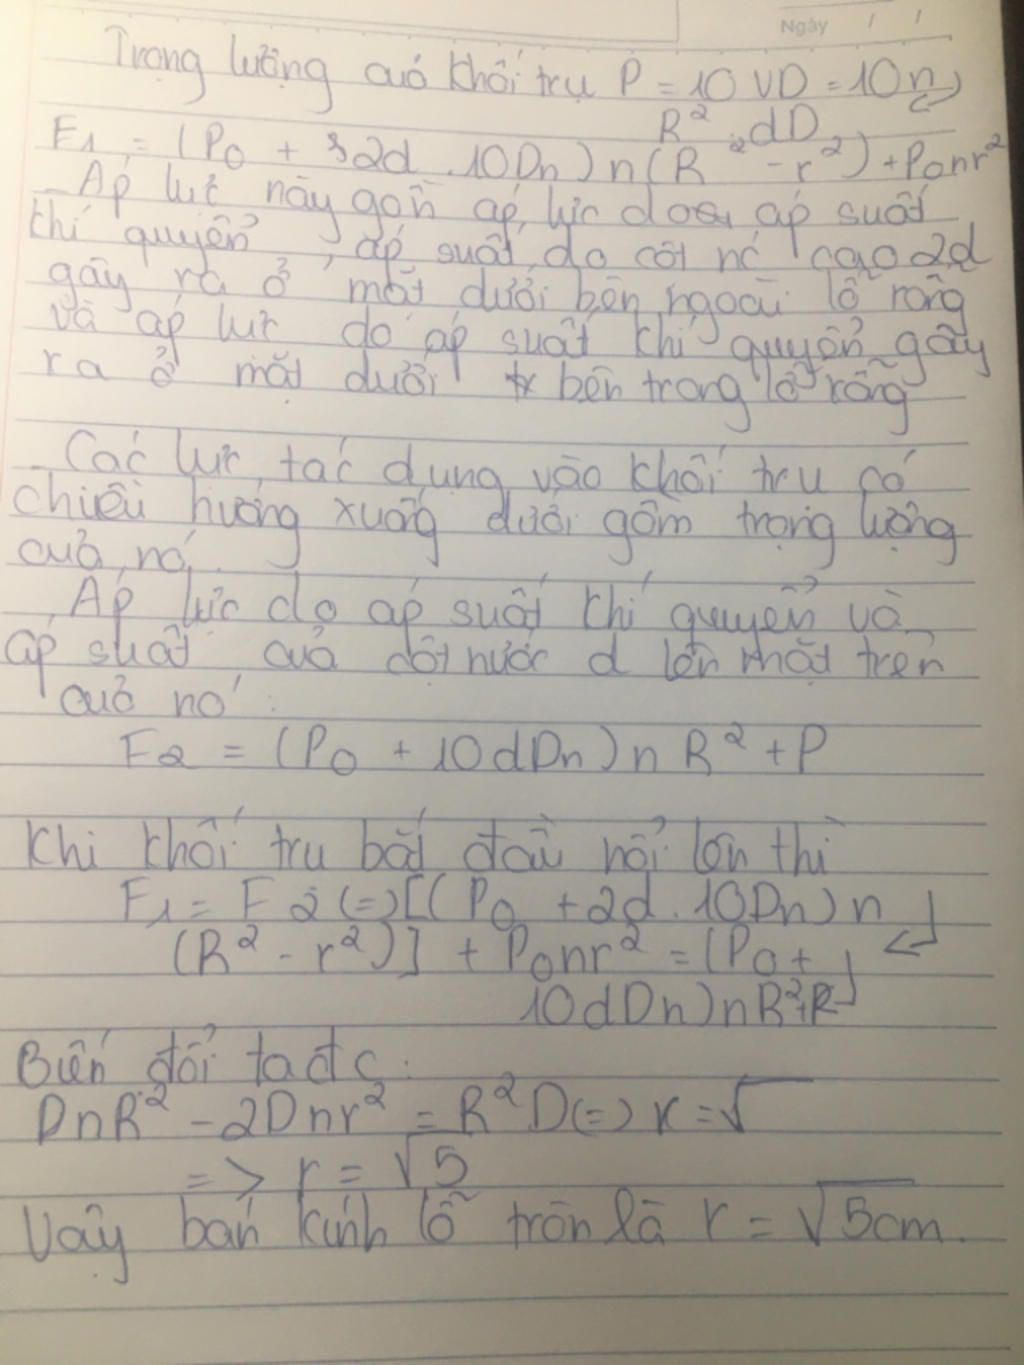 Ngày / /
Trọng lượng cuả khối trụ P = 10VD = 10n
R² dD
F1 = (P0 + 2d . 10Dn) n (R² - r²) + P0nr²
Áp lực này gồm áp lực do áp suất
khí quyển, áp suất do cột nc cao 2d
gây ra ở mặt dưới bên ngoài lỗ rỗng
và áp lực do áp suất khí quyển gây
ra ở mặt dưới bên trong lỗ rỗng
Các lực tác dụng vào khối trụ có
chiều hướng xuống dưới gồm trọng lượng
cuả nó
Áp lực do áp suất khí quyển và
áp suất cuả cột nước d lên mặt trên
cuả nó :
F2 = (P0 + 10dDn) n R² + P
Khi khối trụ bắt đầu nổi lên thì
F1 = F2 (=) [(P0 + 2d . 10Dn) n
(R² - r²)] + P0nr² = (P0 +
10dDn) nR² +
Biến đổi ta đc :
DnR² - 2Dnr² = R²D (=) r = √
=> r = √5
Vậy bán kính lỗ tròn là r = √5cm.